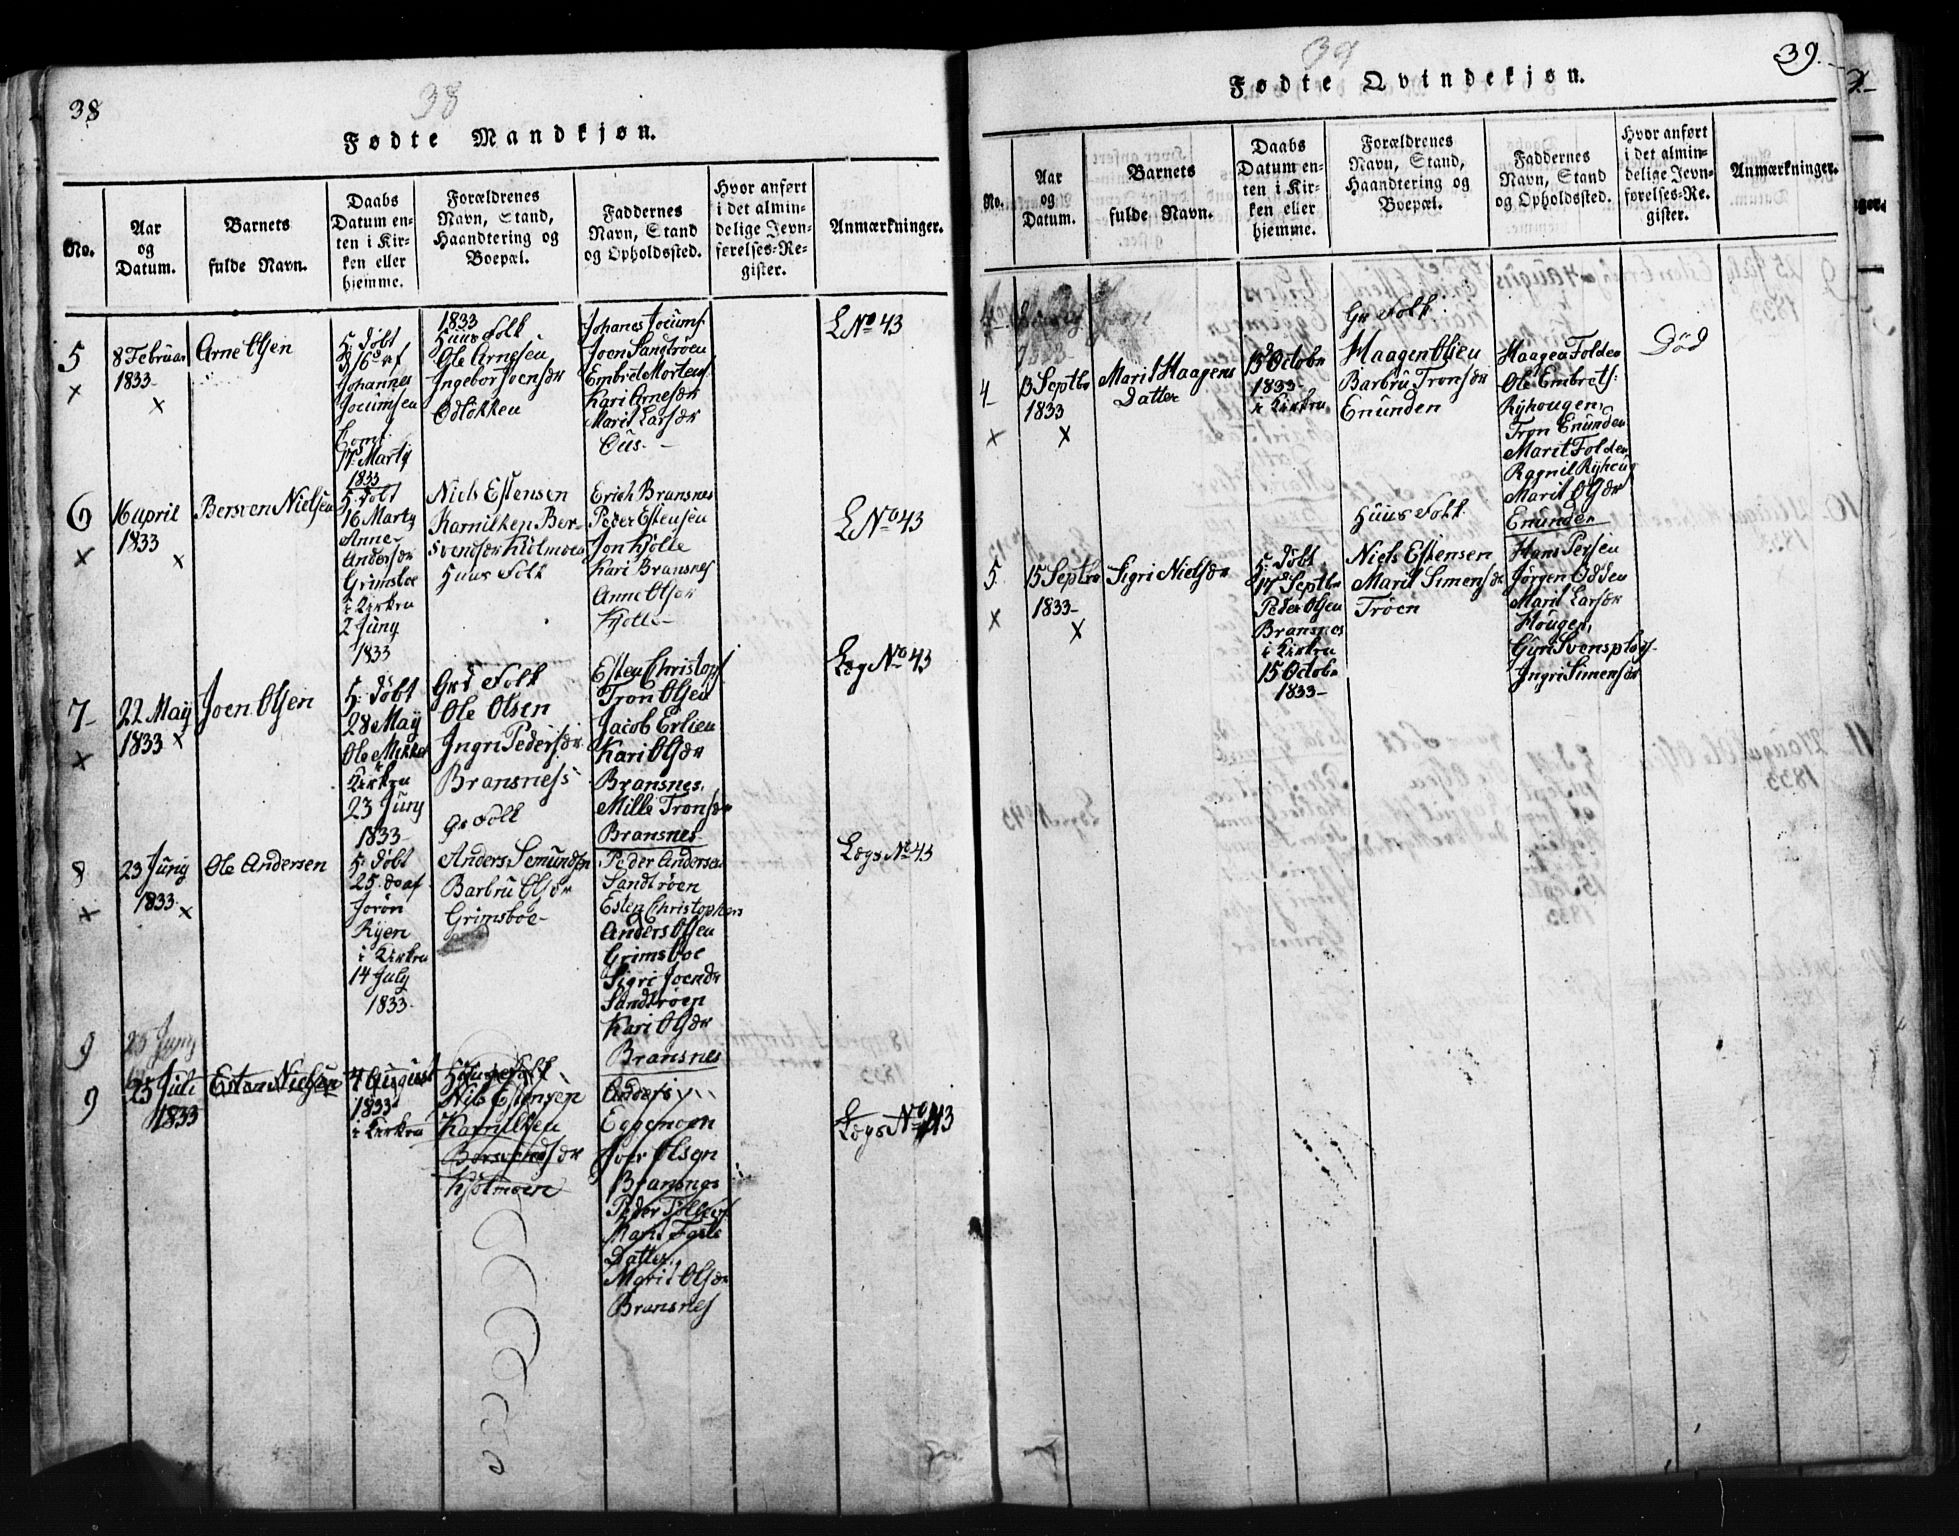 38
38
Fødte Mandkjøn.
No.
Aar
og
Datum.
Barnets
fulde Navn.
Daabs
Datum en-
ten i Kir-
ken eller
hjemme.
Forældrenes
Navn, Stand,
Haandtering og
Boepæl.
Faddernes
Navn, Stand
og Opholdssted.
Hvor anført
i det almin-
delige Jevn-
førelses-Re-
gister.
Anmærkninger.
5
8 Februar
1833-
Arne Olsen
H. Døbt
Johannes
Jocumsen
17 Marty
1833
1833
Huus Folk
Ole Arnesen
Ingebor Joensdr
Odlokken
Johanes Jocums
Joen Sandtrøen
Embret Mortens
Kari Arnesdr
Marit Larsdr
L No 43
6
16 april
1833
Bersven Nielsen
H. Døbt
16 Marty
Anne
Andersdr
Grimsboe
i Kirken
2 Juny
1833
Niels Estensen
Karnilken Ber-
svensdr Kjølmoen
Huus Folk
Erich Bransnes
Peder Estensen
Jon Kjølle
Kari Bransnes
Anne Olsdr
Kjølle
L No 43
7
22 May
1833
Joen Olsen
H. Døbt
28 May
Ole Mikkel
i Kirken
23 Juny
1833-
Grd Folk
Ole Olsen
Ingri Pedersdr
Bransness
Esten Christops
Tron Olsen
Jacob Erlien
Kari Olsdr
Bransnes,
Mille Tronsdr
Bransnes
Læg No 43
8
23 Juny
1833-
Ole Andersen
H. Døbt
25. do af
Jorøn
Ryen
i Kirken
14 July
1833-
Gr Folk
Anders Semundsen
Barbru Olsdr
Grimsboe-
Peder Andersen
Sandtrøen
Esten Christophers
Anders Olsen
Grimsboe
Sigri Joensdr
Sandtrøen
Kari Olsdr
Bransnes
Lægs No 43
9
23 Juny
9
25 Juli
1833
Esten Nielsen
4 August
1833
i Kirken
Nils Estensen
Karnilken
Bersvendsdr
Kjølmoen
Anders
Eggemoen
Iver Olsen
Bransnes
Peder Tollefs
Marit
Datter,
Marit Olsdr
Bransnes
Lægs No 43
39
39.
Fødte Qvindekjøn.
No.
Aar
og
Datum.
Barnets
fulde Navn.
Daabs
Datum en-
ten i Kir-
ken eller
hjemme.
Forældrenes
Navn, Stand,
Haandtering og
Boepæl.
Faddernes
Navn, Stand
og Opholdssted.
Hvor anført
i det almin-
delige Jevn-
førelses-Re-
gister.
Anmærkninger.
4
4
13 Septbr
1833
Marit Haagens
Datter
13 Octobr
1833-
i Kirken
Gr Folk
Haagen Olsen
Barbru Tronsdr
Enunden
Haagen Folden
Ole Embrets:
Ryhougen,
Tron Enunden
Marit Folden
Ragnil Ryhoug
Marit Olsdr
Enunden
Død
5
15 Septbr
1833-
Sigri Nielsdr
H. Døbt
17 Septbr
Peder Olsen
Bransnes
i Kirken
15 Octobr
1833-
Huus Folk
Niels Estensen
Marit Simensdr
Trøen
Hans Persen
Jørgen Odden
Marit Larsdr
Hougen,
Guri Svensploy
Ingri Simensdr